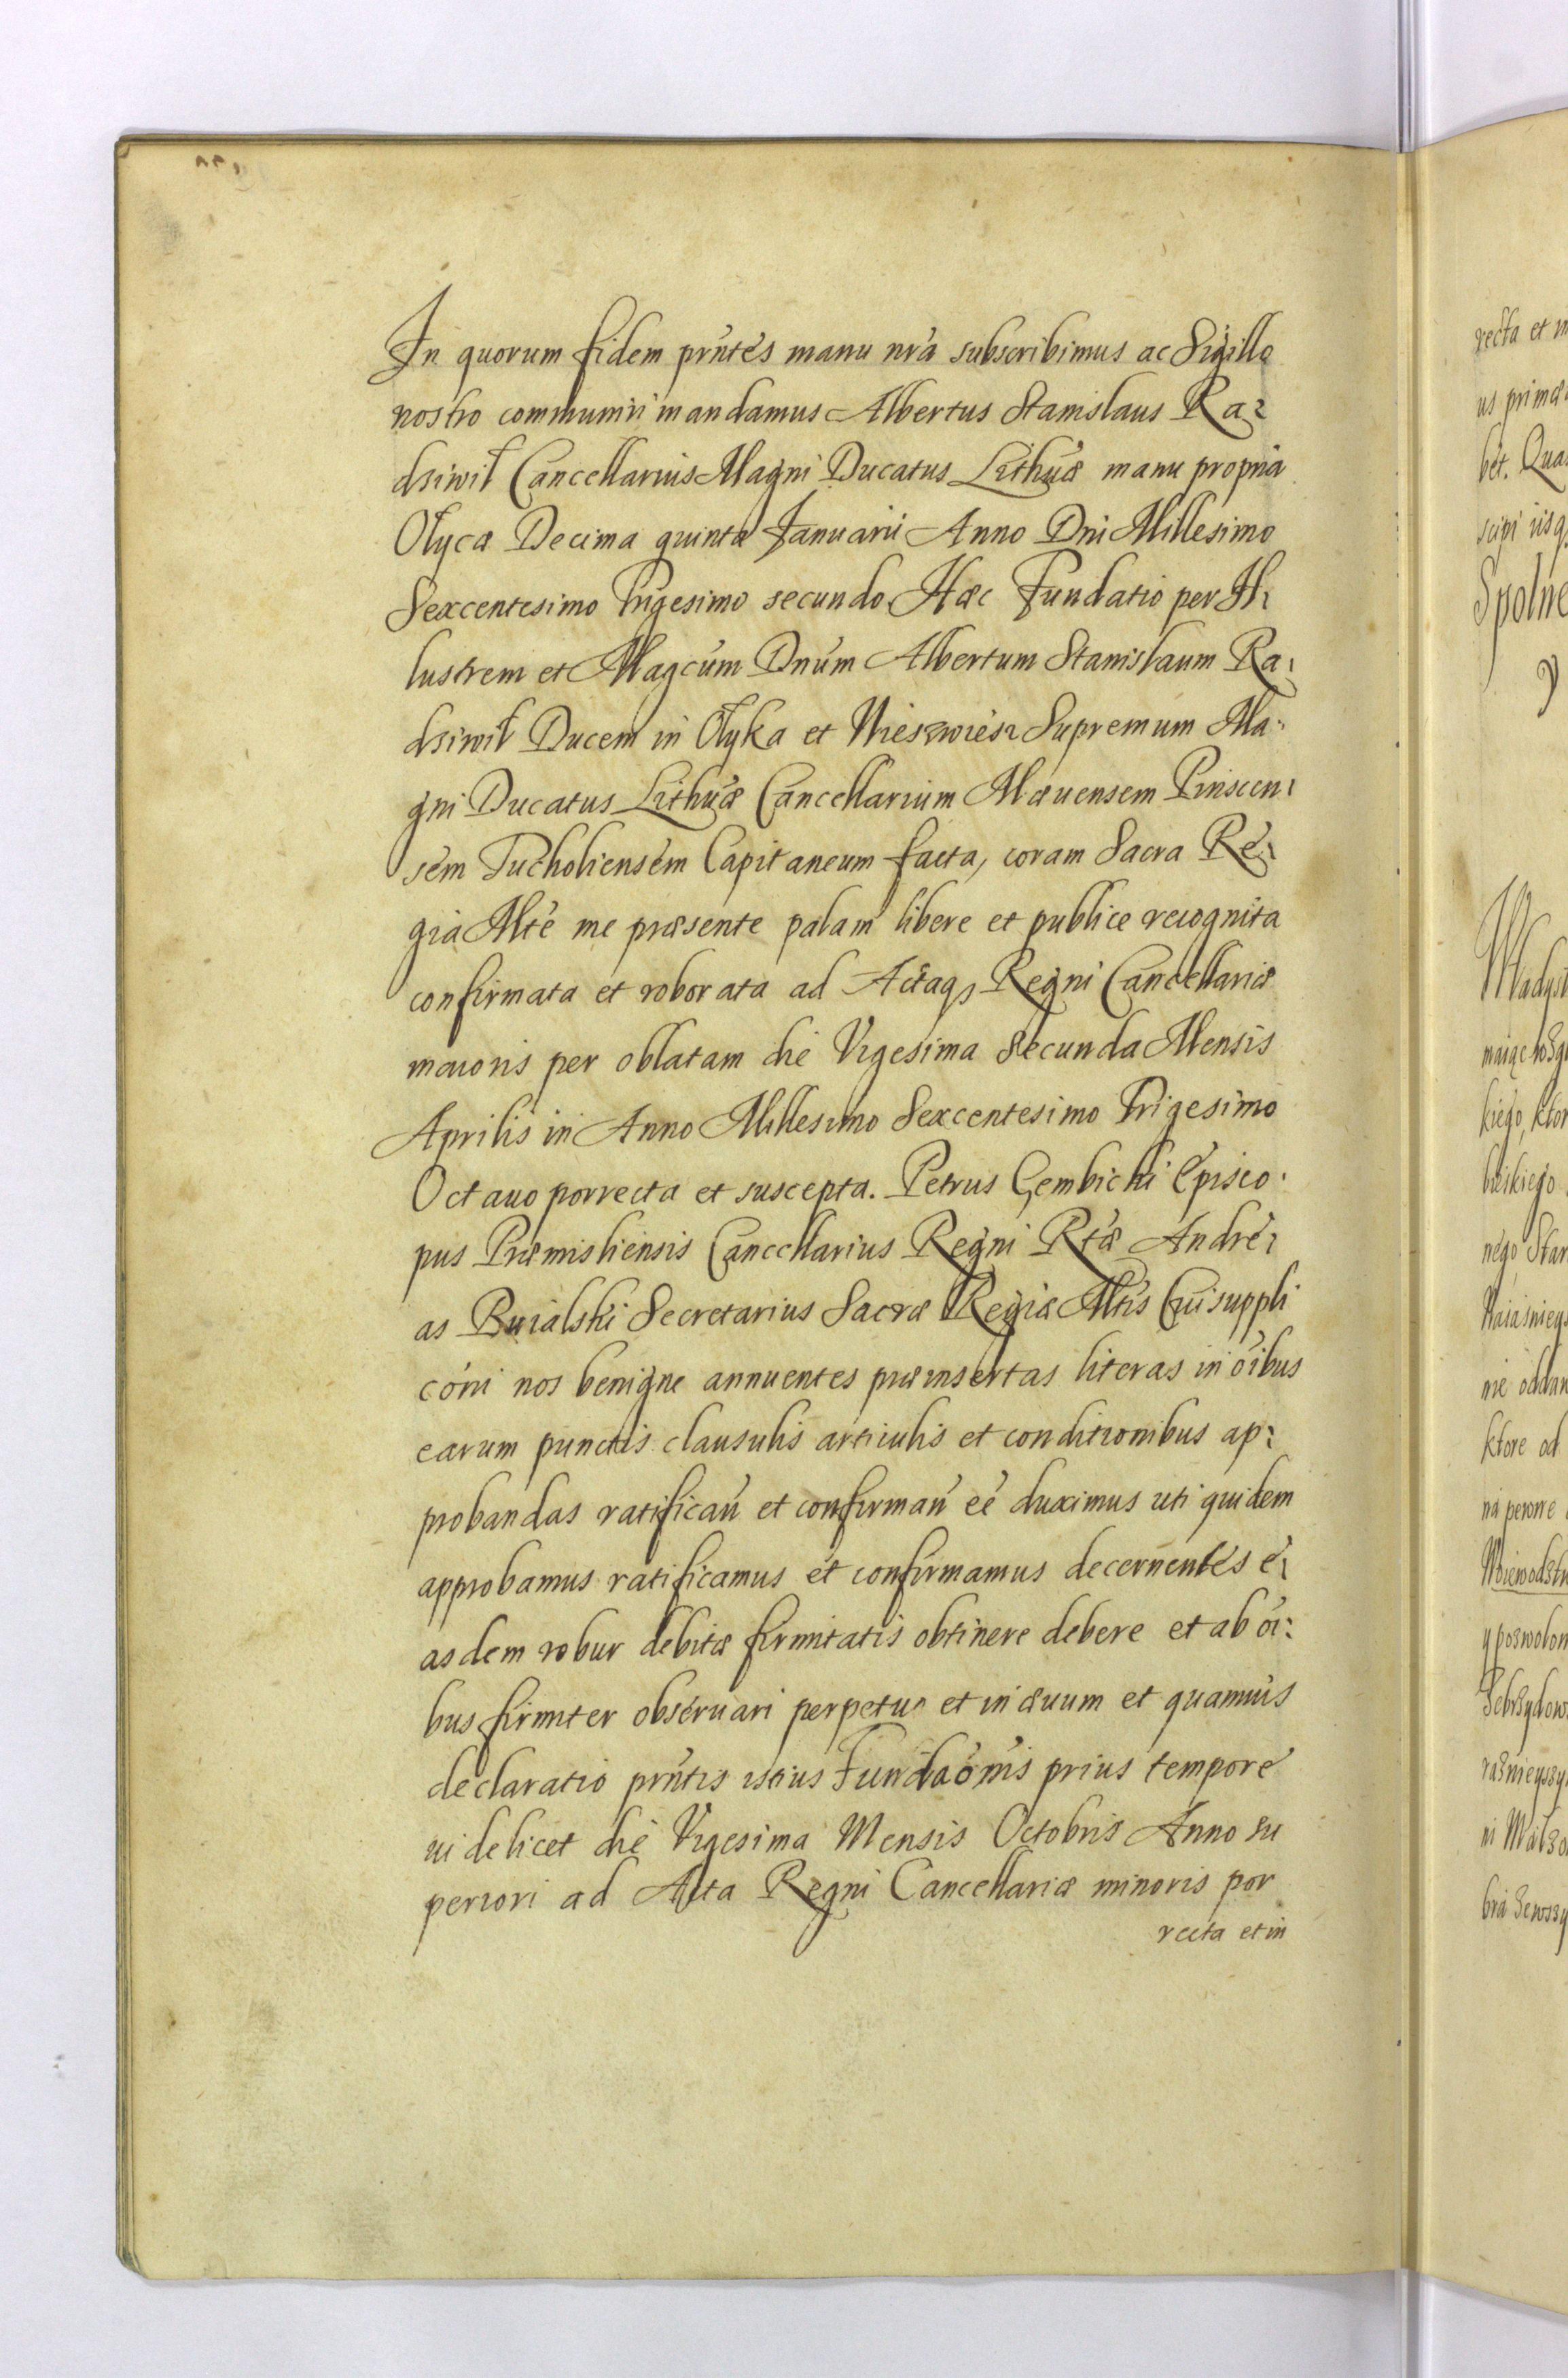 In quorum fidem prñtes manu nrã subscribimus ac Sigillo
nostro communiri mandamus Albertus Stanislaus Ra:
dziwił Cancellarius Magni Ducatus Lithuæ manu propria
Ołycæ Decima quinta Januarii Anno Dni Millesimo
Sexcentesimo Trigesimo secundo. Hæc Fundatio per Il:
lustrem et Magcum Dnum Albertum Stanislaum Ra:
dziwił Ducem in Ołyka et Nieszwiesz Supremum Ma:
gni Ducatus Lithuæ Cancellarium Mævensem Pinscen:
sem Tucholiensem Capitaneum facta, coram Sacra Re:
gia Mte me præsente palam libere et publice recognita
confirmata et roborata ad Actaq; Regni Cancellariæ
maioris per oblatam die Vigesima Secunda Mensis
Aprilis in Anno Millesimo Sexcentesimo Trigesimo
Octavo porrecta et suscepta. Petrus Gembicki Episco:
pus Præmisliensis Cancellarius Regni Rtæ Andre:
as Buialski Secretarius Sacræ Regiæ Mtis Cui suppli
cõni nos benigne annuentes præinsertas literas in õibus
earum punctis clausulis articulis et conditionibus ap:
probandas ratificañ et confirmañ eẽ duximus uti quidem
approbamus ratificamus et confirmamus decernentes e:
asdem robur debitæ firmitatis obtinere debere et ab õi:
bus firmiter obseruari perpetuo et in æuum et quamuis
declaratio prñtis istius Fundaõnis prius tempore
uidelicet die Vigesima Mensis Octobris Anno su
periori ad Acta Regni Cancellariæ minoris por
recta et in
recta et
us primæ
bet. Qua
scipi iisq
Spolne
y
Władysł
kiego, ktor
nego Star
nie oddan
ktore od
na perore
Woiewodztw
y pozwolon